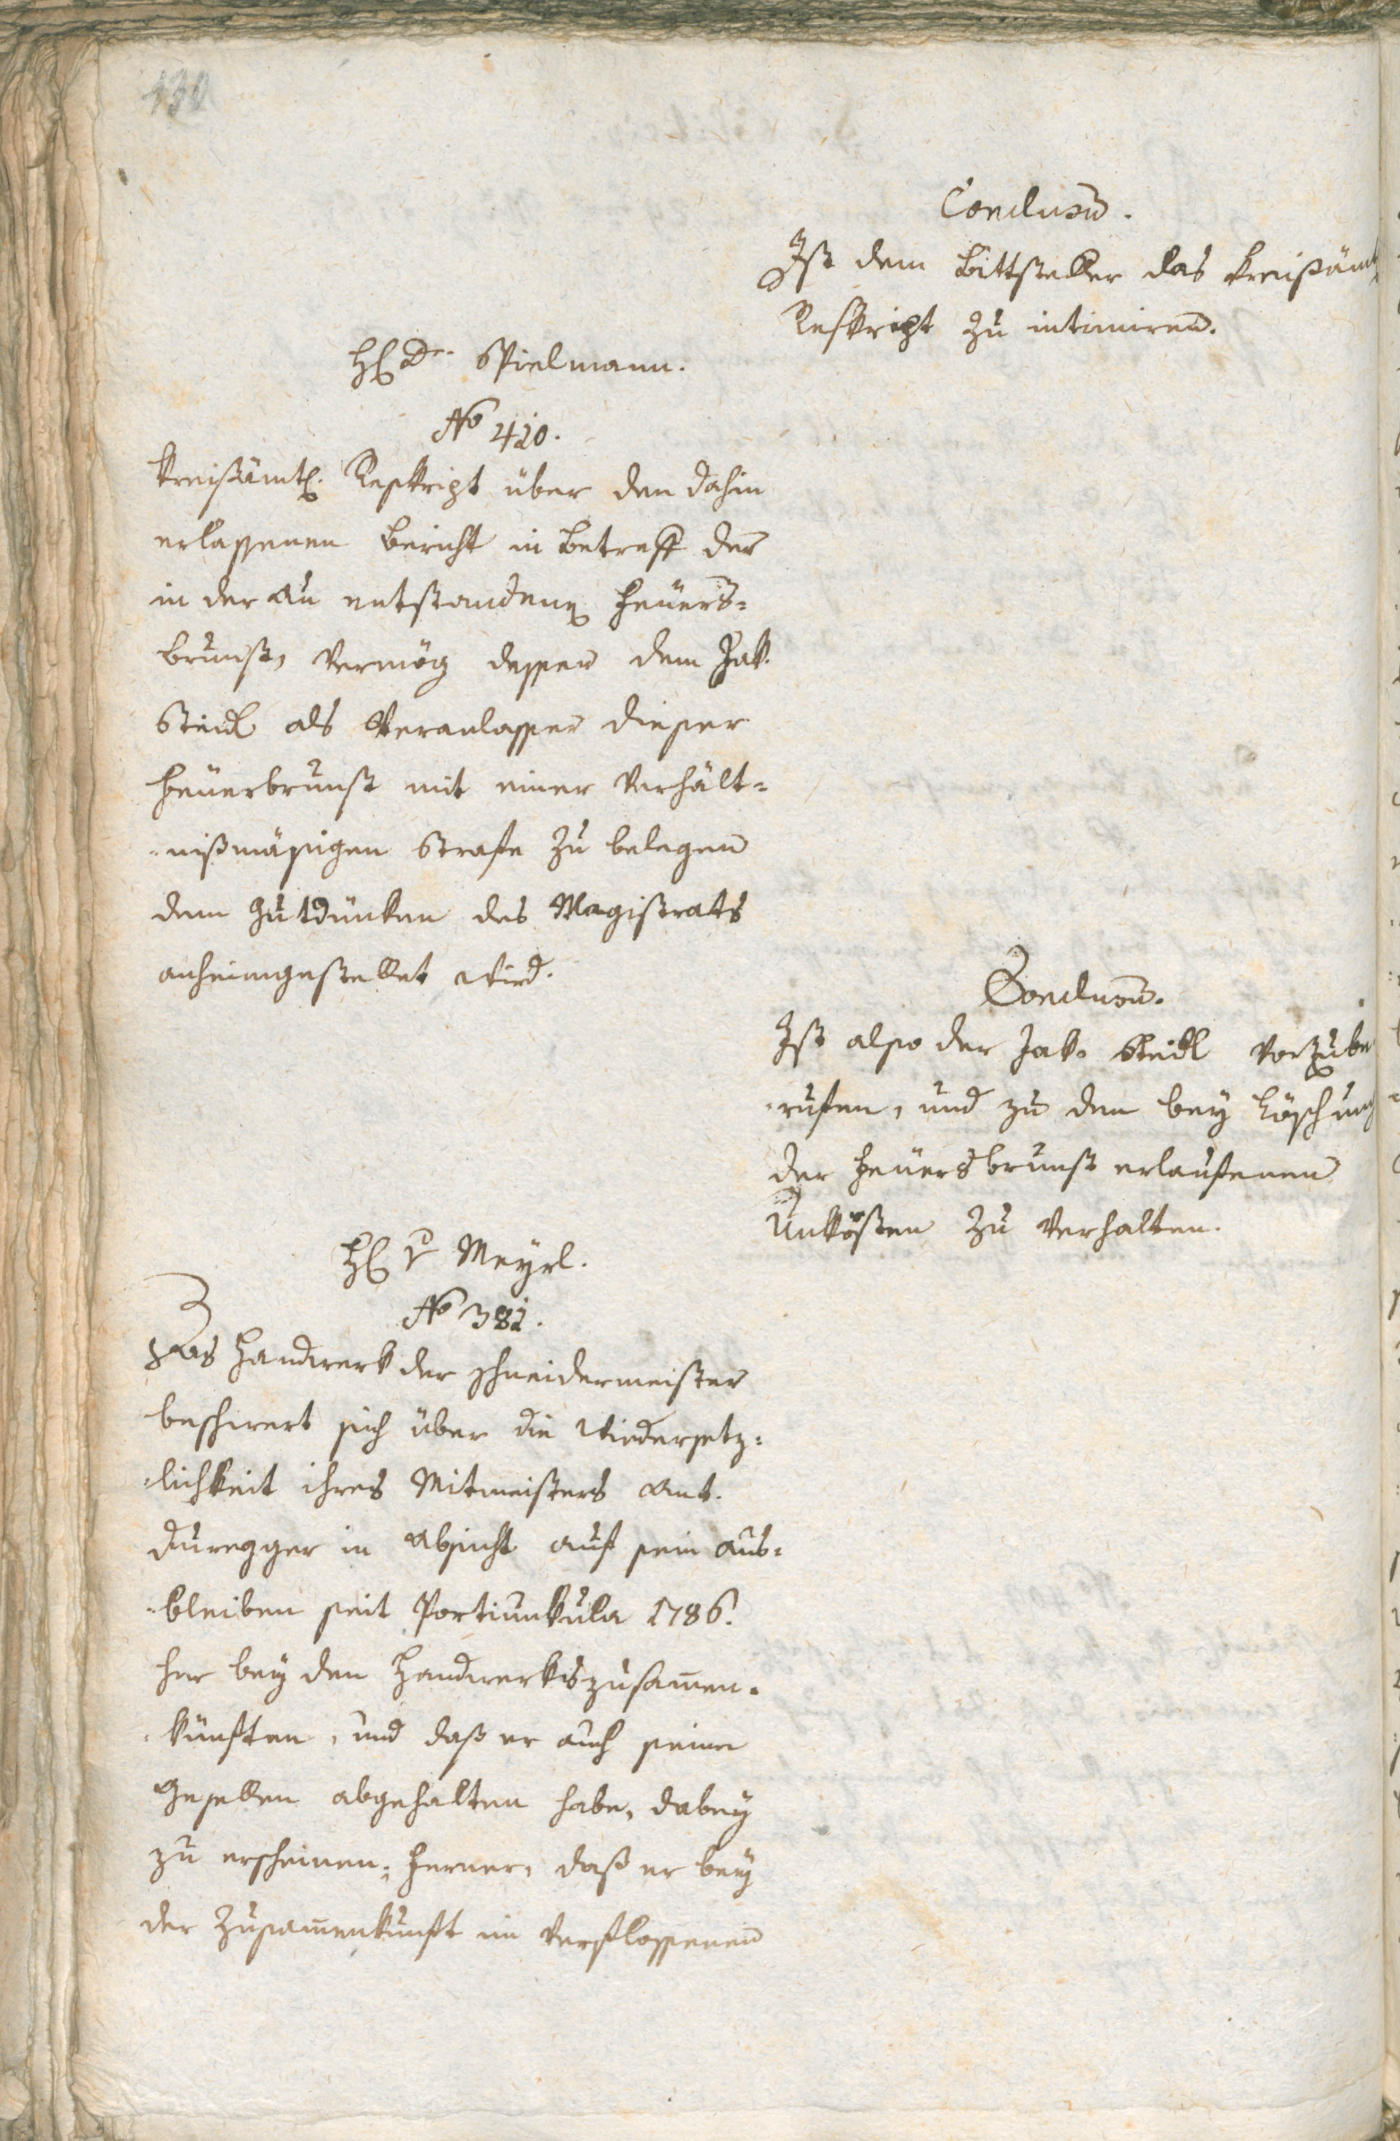 130
Conclusū.
Ist dem Bittsteller das kreißämt
Reskript zu intimiren.
H. Dr. Spielmann.
No 420.
Kreißämtl. Reskript über den dahin
erlassenen Bericht in Betreff der
in der Au entstandenen Feuers=
brunst, vermög dessen dem Jak.
Steidl als Veranlasser dieser
Feuerbrunst mit einer verhält=
=nißmäßigen Strafe zu belegen
dem Gutdünken des Magistrats
anheimgestellet wird.
Conclusū.
Ist also der Jak. Steidl vorzube
=rufen, und zu den bey Löschung
der Feuersbrunst erlaufenen
Unkösten zu verhalten.
H. v Meyrl.
No 381.
Das Handwerk der Schneidermeister
beschwert sich über die Wiedersetz=
=lichkeit ihres Mitmeisters Ant.
Duregger in Absicht auf sein aus=
=bleiben seit Portiunkula 1786.
her bey den Handwerkszusam̄en=
=künften, und daß er auch seine
Gesellen abgehalten habe, dabey
zu erscheinen; ferner, daß er bey
der Zusam̄enkunft im verflossenen